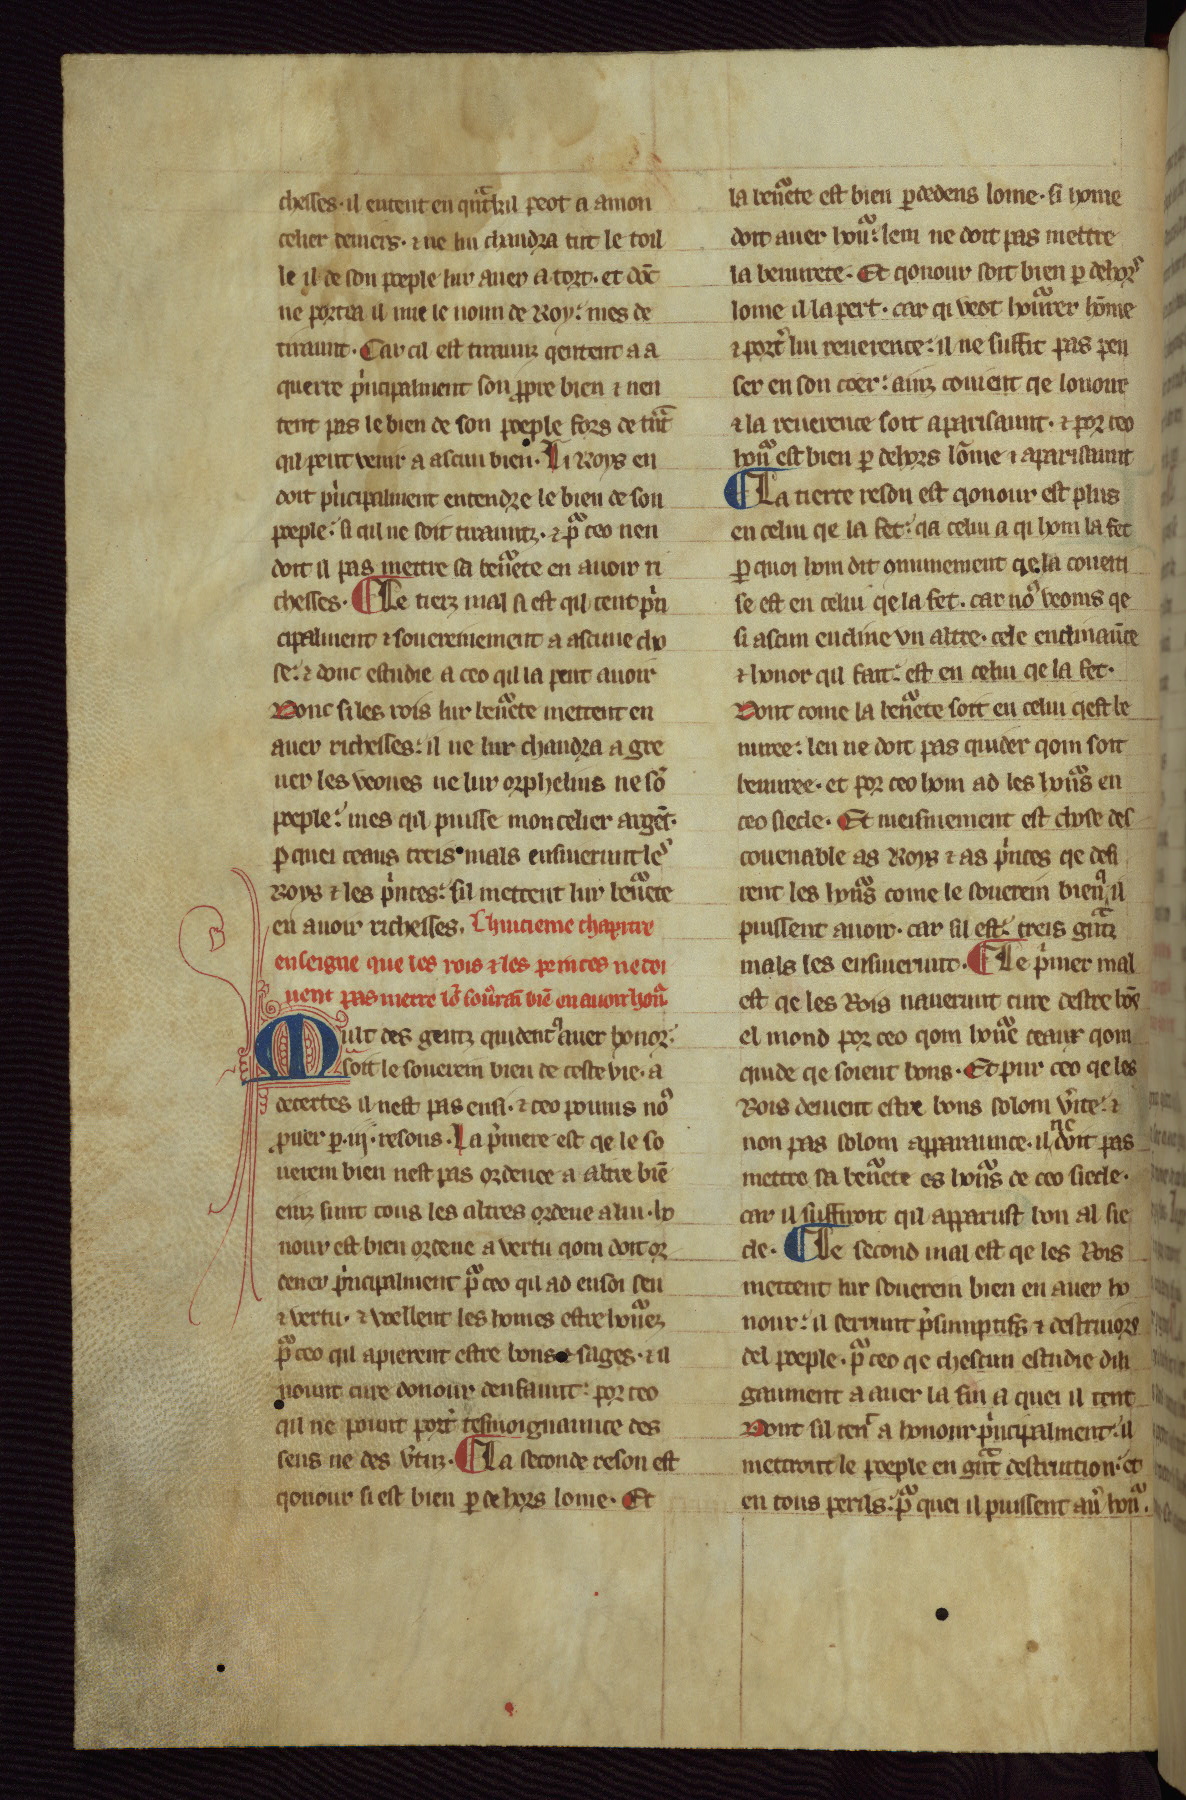 chesses · il entent en qntͣkil peot a amon
celier deniers · ⁊ ne lui chaudra tut le toil
le il de son poeple lur aver a tort · et dōc
ne portra il mie le noun de Roy : mes de
tiraunt · Car cil est tiraunz qentent a a
querre pⁱncipalment son ꝓpre bien ⁊ nen
tent pas le bien de son poeple fors de tāt
qil peut venir a ascun bien · Li Roys en
doit pⁱncipalment entendre le bien de son
poeple : si qil ne soit tirauntz · ⁊ pͣ ceo nen
doit il pas mettre sa benͣete en avoir ri
chesses · ¶ Le tierz mal si est qil tent pⁱn
cipalment ⁊ sovereinement a ascune cho
se : ⁊ donc estudie a ceo qil la peut avoir
Donc si les rois lur benͣete mettent en
aver richesses : il ne lur chaudra a gre
ver les veoves ne lur orphelins ne sō
poeple : mes qil puisse moncelier argēt ·
ꝑ quei ceaus treis mals ensiverunt leˢ
Roys ⁊ les pⁱnces : sil mettent lur benͣete
en avoir richesses . Lhuitieme chapitre
enseigne que les rois ⁊ les princes ne doi
vent pas metre lor soverā biē en avoir honͣ
Mult des gentz quident aver honor :
soit le soverein bien de ceste vie · a
decertes il nest pas ensi · ⁊ ceo poums noꝰ
pruer ꝑ · iij · resons · La pⁱmere est qe le so
verein bien nest pas ordenee a altre biē
einz sunt tous les altres ordene a lui · ho
nour est bien ordene a vertu qom doit or
dener pⁱncipalment pͣ ceo qil ad ensoi sen
⁊ vertu · ⁊ voellent les homes estre honͣez
pͣ ceo qil apierent estre bons ⁊ sages · ⁊ il
nount cure donour densaunt : por ceo
qil ne pount port' tesmoignaunce des
sens ne des v'tuz · ¶ La seconde reson est
qonour si est bien ꝑ dehors lome · Et
la benͣete est bien ꝑ dedens lome · si home
doit aver honͣ : lem ne doit pas mettre
la beneurete · Et qonour soit bien ꝑ dehorˢ
lome il la pert · car qi veot honͣrer hōme
⁊ port' lui reverence : il ne suffit pas pen
ser en son coer : ainz covient qe lonour
⁊ la reverence soit aparisaunt · ⁊ por ceo
honͣ est bien ꝑ dehors lōme ⁊ aparisaunt
¶ La tierce reson est qonour est plus
en celui qe la fet : qa celui a qi hom la fet
ꝑ quoi hom dit omunement qe la coveiti
se est en celui qe la fet · car noꝰ veoms qe
si ascun encline un altre · cele enclināce
⁊ honor qil fait : est en celui qe la fet ·
Dont come la benͣete soit en celui qest be
nuree : len ne doit pas quider qom soit
benuree · et por ceo hom ad les honͣs en
ceo siecle · Et meismement est chose des
covenable as Roys ⁊ as pⁱnces qe desi
rent les honͣs come le soverein bien qil
puissent avoir · car sil est : treis gͣtz
mals les ensiverunt · ¶ Le pⁱmer mal
est qe les Rois naverunt cure destre bōs
el mond por ceo qom honͣe ceaux qom
quide qe soient bons · Et pur ceo qe les
Rois devient estre bons solom v'ite : ⁊
non pas solom apparaunce · il ne doit pas
mettre sa benͣete es honͣs de ceo siecle ·
car il suffiroit qil apparust bon al sie
cle · ¶ Le second mal est qe les Rois
mettent lur soverein bien en aver ho
nour : il serunt pⁱsumptifs ⁊ destruiors
del poeple · pͣ ceo qe chescun estudie dili
gaument a aver la fin a quei il tent
Dont sil tent a honour pⁱncipalment : il
mettront le poeple en gͣt destruction · et
en tous perils : pͣ quei il puissent av' honͣ .